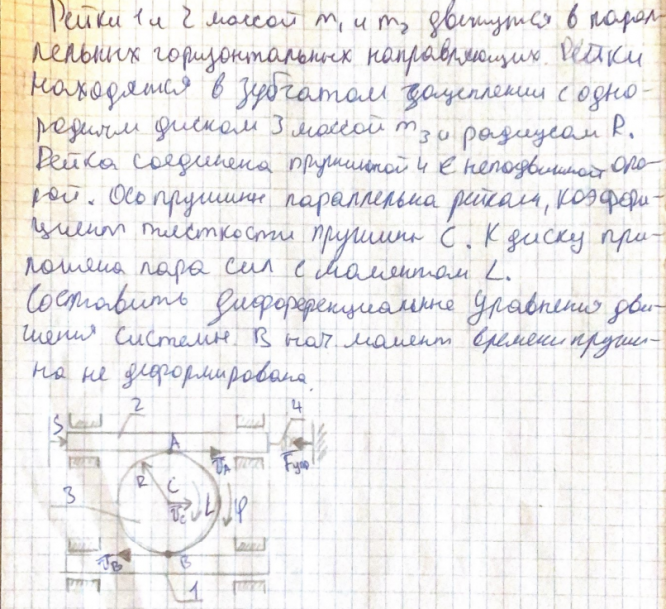 Рейки 1 и 2 массой m₁ и m₂ движутся в парал-
лельных горизонтальных направляющих. Рейки
находятся в зубчатом зацеплении с одно-
родным диском 3 массой m₃ и радиусом R.
Рейка соединена пружиной 4 с неподвижной опо-
рой. Ось пружины параллельна рейкам, коэффи-
циент жесткости пружины C. К диску при-
ложена пара сил с моментом L.
Составить дифференциальные уравнения дви-
жения системы. В нач. момент времени пружи-
на не деформирована.
2
4
S
A
V̄A
F̄упр
R
C
3
V̄C
L
φ
V̄B
B
1